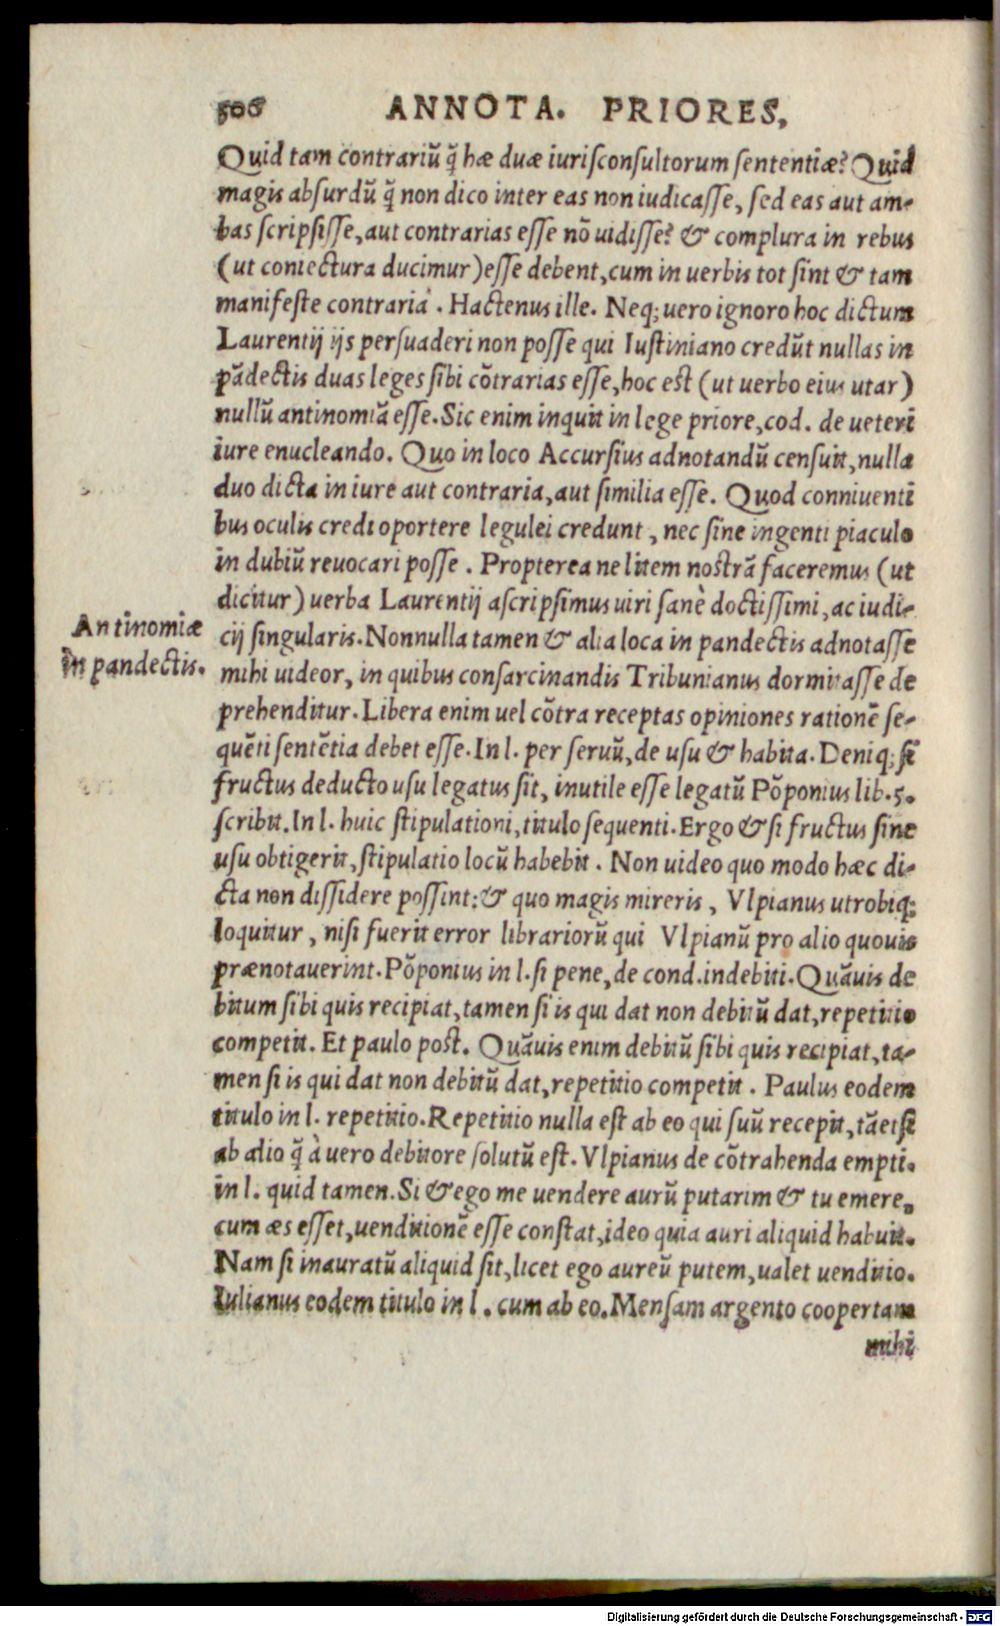 506 ANNOTA. PRIORES,
Quid tam contrariũ q̃ hæ duæ iurisconsultorum sententiæ? Quid
magis absurdũ q̃ non dico inter eas non iudicasse, sed eas aut am-
bas scripsisse, aut contrarias esse nõ uidisse? & complura in rebus
(ut coniectura ducimur) esse debent, cum in uerbis tot sint & tam
manifeste contraria. Hactenus ille. Neq; uero ignoro hoc dictum
Laurentij ijs persuaderi non posse qui Iustiniano credũt nullas in
pãdectis duas leges sibi cõtrarias esse, hoc est (ut uerbo eius utar)
nullũ antinomiã esse. Sic enim inquit in lege priore, cod. de ueteri
iure enucleando. Quo in loco Accursius adnotandũ censuit, nulla
duo dicta in iure aut contraria, aut similia esse. Quod conniuenti
bus oculis credi oportere legulei credunt, nec sine ingenti piaculo
in dubiũ reuocari posse. Propterea ne litem nostrã faceremus (ut
dicitur) uerba Laurentij ascripsimus uiri sanè doctissimi, ac iudi-
Antinomiæ
in pandectis.
cij singularis. Nonnulla tamen & alia loca in pandectis adnotasse
mihi uideor, in quibus consarcinandis Tribunianus dormitasse de
prehenditur. Libera enim uel cõtra receptas opiniones rationẽ se-
quẽti sentẽtia debet esse. In l. per seruũ, de usu & habita. Deniq; si
fructus deducto usu legatus sit, inutile esse legatũ Põponius lib. 5.
scribit. In l. huic stipulationi, titulo sequenti. Ergo & si fructus sine
usu obtigerit, stipulatio locũ habebit. Non uideo quo modo hæc di-
cta non dissidere possint: & quo magis mireris, Vlpianus utrobiq;
loquitur, nisi fuerit error librariorũ qui Vlpianũ pro alio quouis
prænotauerint. Põponius in l. si pene, de cond. indebiti. Quãuis de
bitum sibi quis recipiat, tamen si is qui dat non debitũ dat, repetitio
competit. Et paulo post. Quãuis enim debitũ sibi quis recipiat, ta-
men si is qui dat non debitũ dat, repetitio competit. Paulus eodem
titulo in l. repetitio. Repetitio nulla est ab eo qui suũ recepit, tãetsi
ab alio q̃ à uero debitore solutũ est. Vlpianus de cõtrahenda empti.
in l. quid tamen. Si & ego me uendere aurũ putarim & tu emere,
cum æs esset, uenditionẽ esse constat, ideo quia auri aliquid habuit.
Nam si inauratũ aliquid sit, licet ego aureũ putem, ualet uenditio.
Iulianus eodem titulo in l. cum ab eo. Mensam argento coopertam
mihi
Digitalisierung gefördert durch die Deutsche Forschungsgemeinschaft - DFG